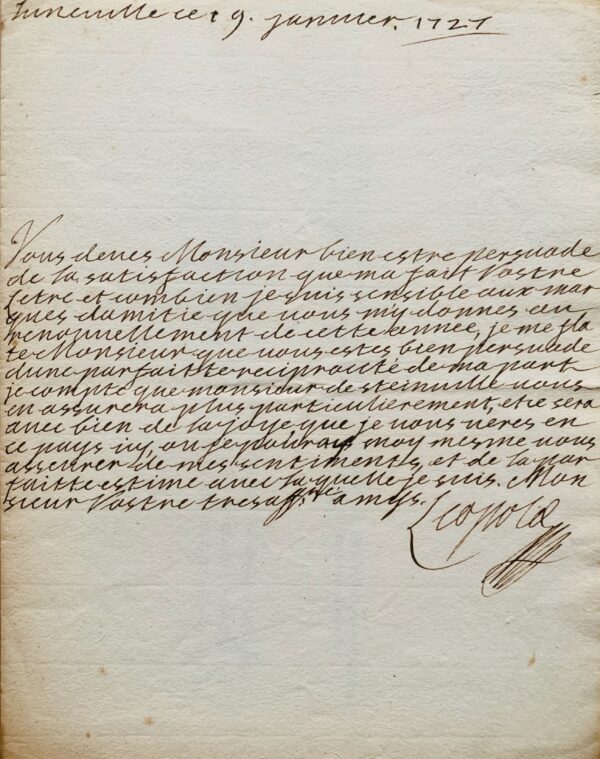 Luneville ce 19. janvier. 1727
Vous deves Monsieur bien estre persuade
de la satisfaction que ma fait Vostre
letre et combien je suis sensible aux mar
ques damitie que vous my donnes au
renouvellement de cette année, je me fla
te Monsieur que vous estes bien persuade
dune parfaitte reciprocité de ma part
je compte que monsieur de steinville vous
en assurera plus particulierement, et ce sera
avec bien de la joye que je vous veres en
ce pays icy, ou je pourais moy mesme vous
asseurer de mes sentiments, et de la par
faitte estime avec laquelle je suis. Mon
sieur Vostre tres aff.né amys.
Leopold